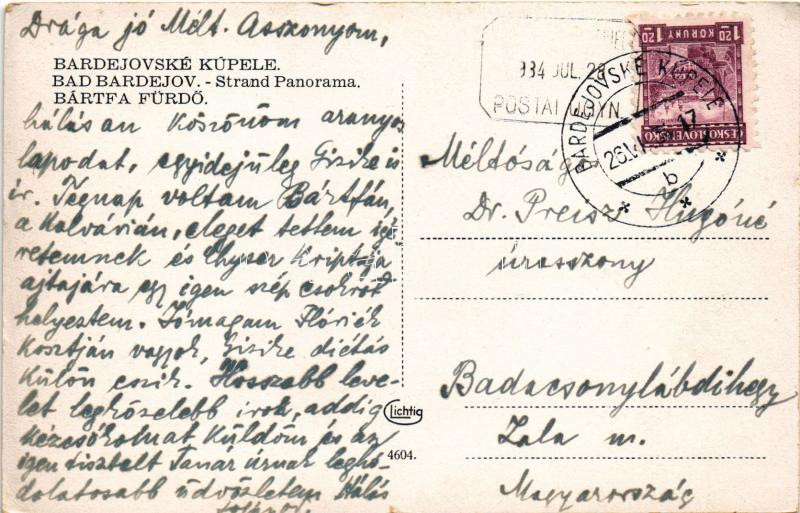 Drága jó Mélt. Asszonyom,
BARDEJOVSKÉ KÚPELE.
BAD BARDEJOV. - Strand Panorama.
BÁRTFA FÜRDŐ.
hálásan köszönöm aranyos
lapodat, egyidejüleg Gizike is
ir. Tegnap voltam Bártfán,
a Kalvárián, eleget tettem igé
retemnek és Chyzer Kriptája
ajtajára egy igen szép csokrot
helyeztem. Jómagam Flóriék
Kosztján vagyok, Gizike diétás
külön eszik. Hosszabb leve-
let legközelebb irok, addig
kézcsókolmat küldöm és az
igen tisztelt Tanár úrnak leghó-
dolatosabb üdvözletem Hálás
Lichtig
4604.
934 JUL. 28
POSTAI
BARDEJOVSKÉ KÚPELE
17
b
1.20 KORUNY 1.20
ČESKOSLOVENSKO
Méltósá
Dr. Preisz Hugóné
úrasszony
Badacsonylábdihegy
Zala m.
Magyarország